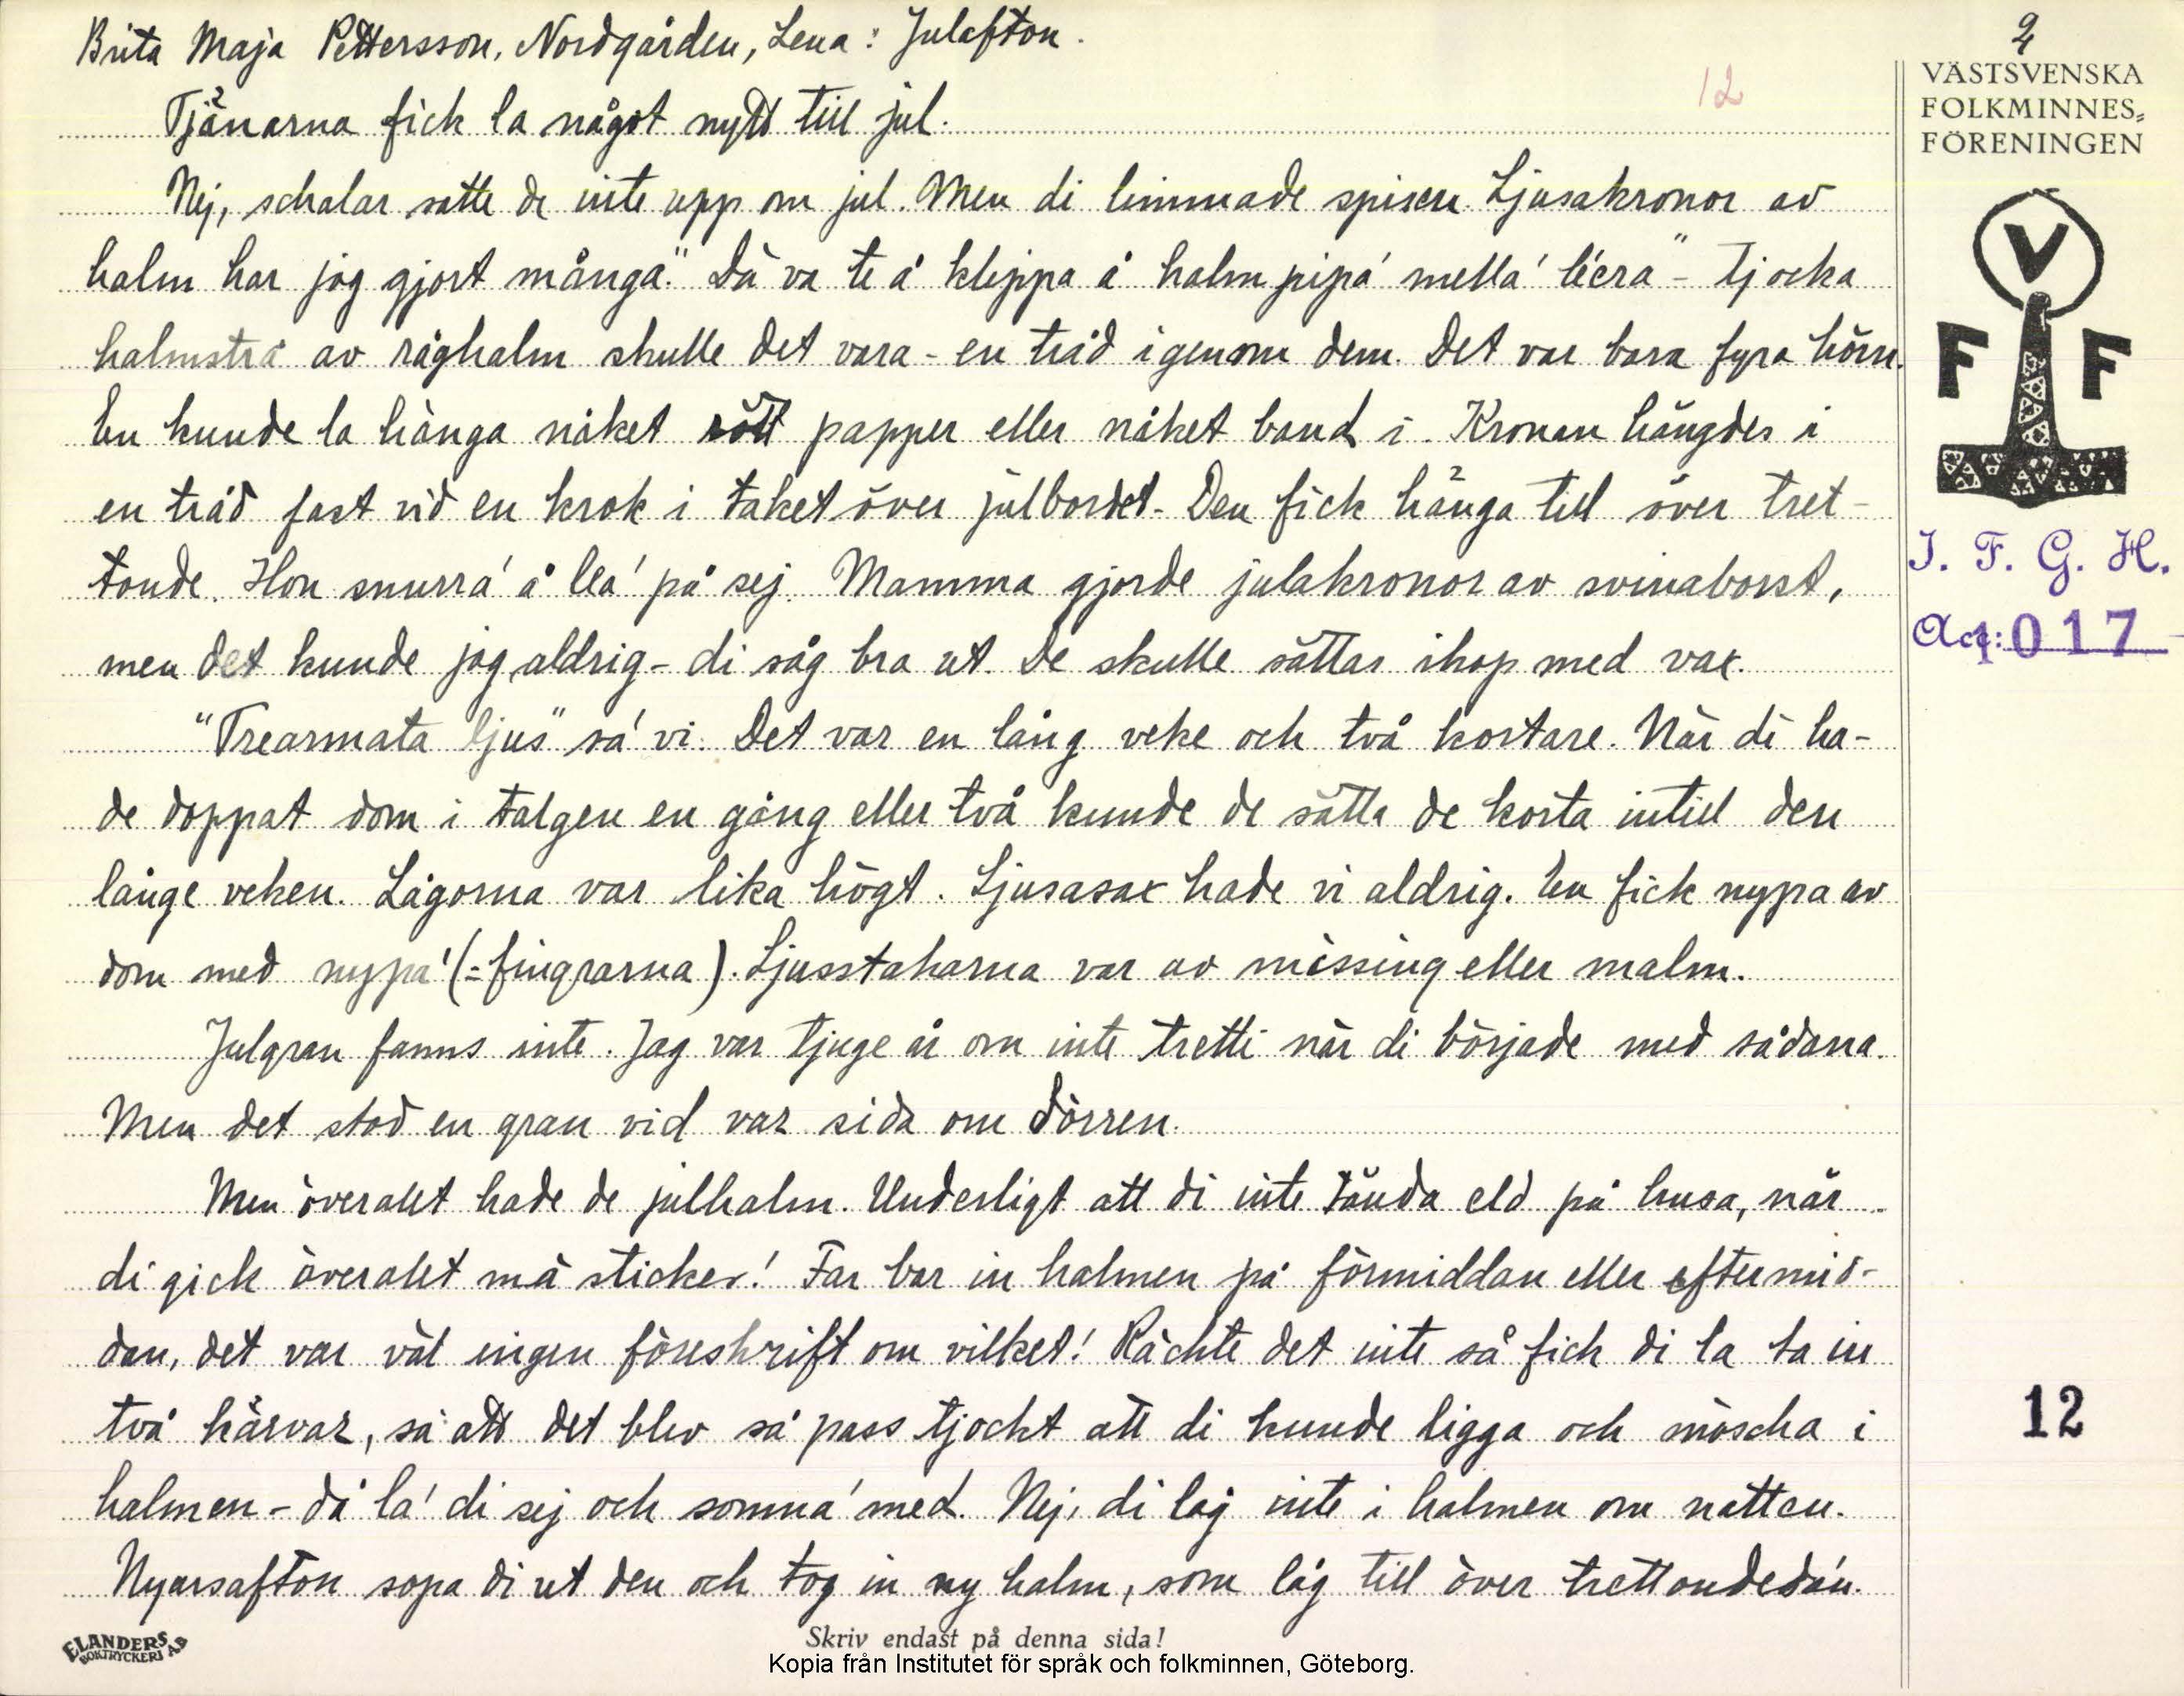 Brita Maja Pettersson, Nordgården, Lena: Julafton.
2
12
VÄSTSVENSKA
FOLKMINNES-
FÖRENINGEN
Tjänarna fick la något nytt till jul.
Nej, schalar satte de inte upp om jul. Men di limmade spisen. Ljusakronor av
halm har jag gjort många. "Dä va te å' klippa å' halmpipa' mella' lèera" - tjocka
halmstrå av råghalm skulle det vara - en tråd igenom dem. Det var bara fyra hörn.
En kunde la hänga nåket rött papper eller nåket band i. Kronan hängdes i
en tråd fast vid en krok i taket över julbordet. Den fick hänga till över tret-
tonde. Hon snurra' å lea' på sej. Mamma gjorde julakronor av svinaborst,
men det kunde jag aldrig - di såg bra ut. De skulle sättas ihop med vax.
"Trearmata ljus" sa' vi. Det var en lång veke och två kortare. När di ha-
de doppat dom i talgen en gång eller två kunde de sätta de korta intill den
långe veken. Lågorna var lika högt. Ljusasax hade vi aldrig. En fick nypa av
dom med nypa' (=fingrarna). Ljusstakarna var av missing eller malm.
Julgran fanns inte. Jag var tjuge år om inte tretti när di började med sådana.
Men det stod en gran vid var sida om dörren.
Men överallt hade de julhalm. Underligt att di inte tända eld på husa, när
di gick överallt må stickor! Far bar in halmen på förmiddan eller eftermid-
dan, det var väl ingen föreskrift om vilket! Räckte det inte så fick di la ta in
två kärvar, så att det blev så pass tjockt att di kunde ligga och möscha i
halmen - då la' di sej och somna' med. Nej, di låg inte i halmen om natten.
Nyarsafton sopa di ut den och tog in ny halm, som låg till över trettondedan.
V
F F
I. F. G. H.
Acc: 1017
12
ELANDERS
BOKTRYCKERI AB
Skriv endast på denna sida!
Kopia från Institutet för språk och folkminnen, Göteborg.